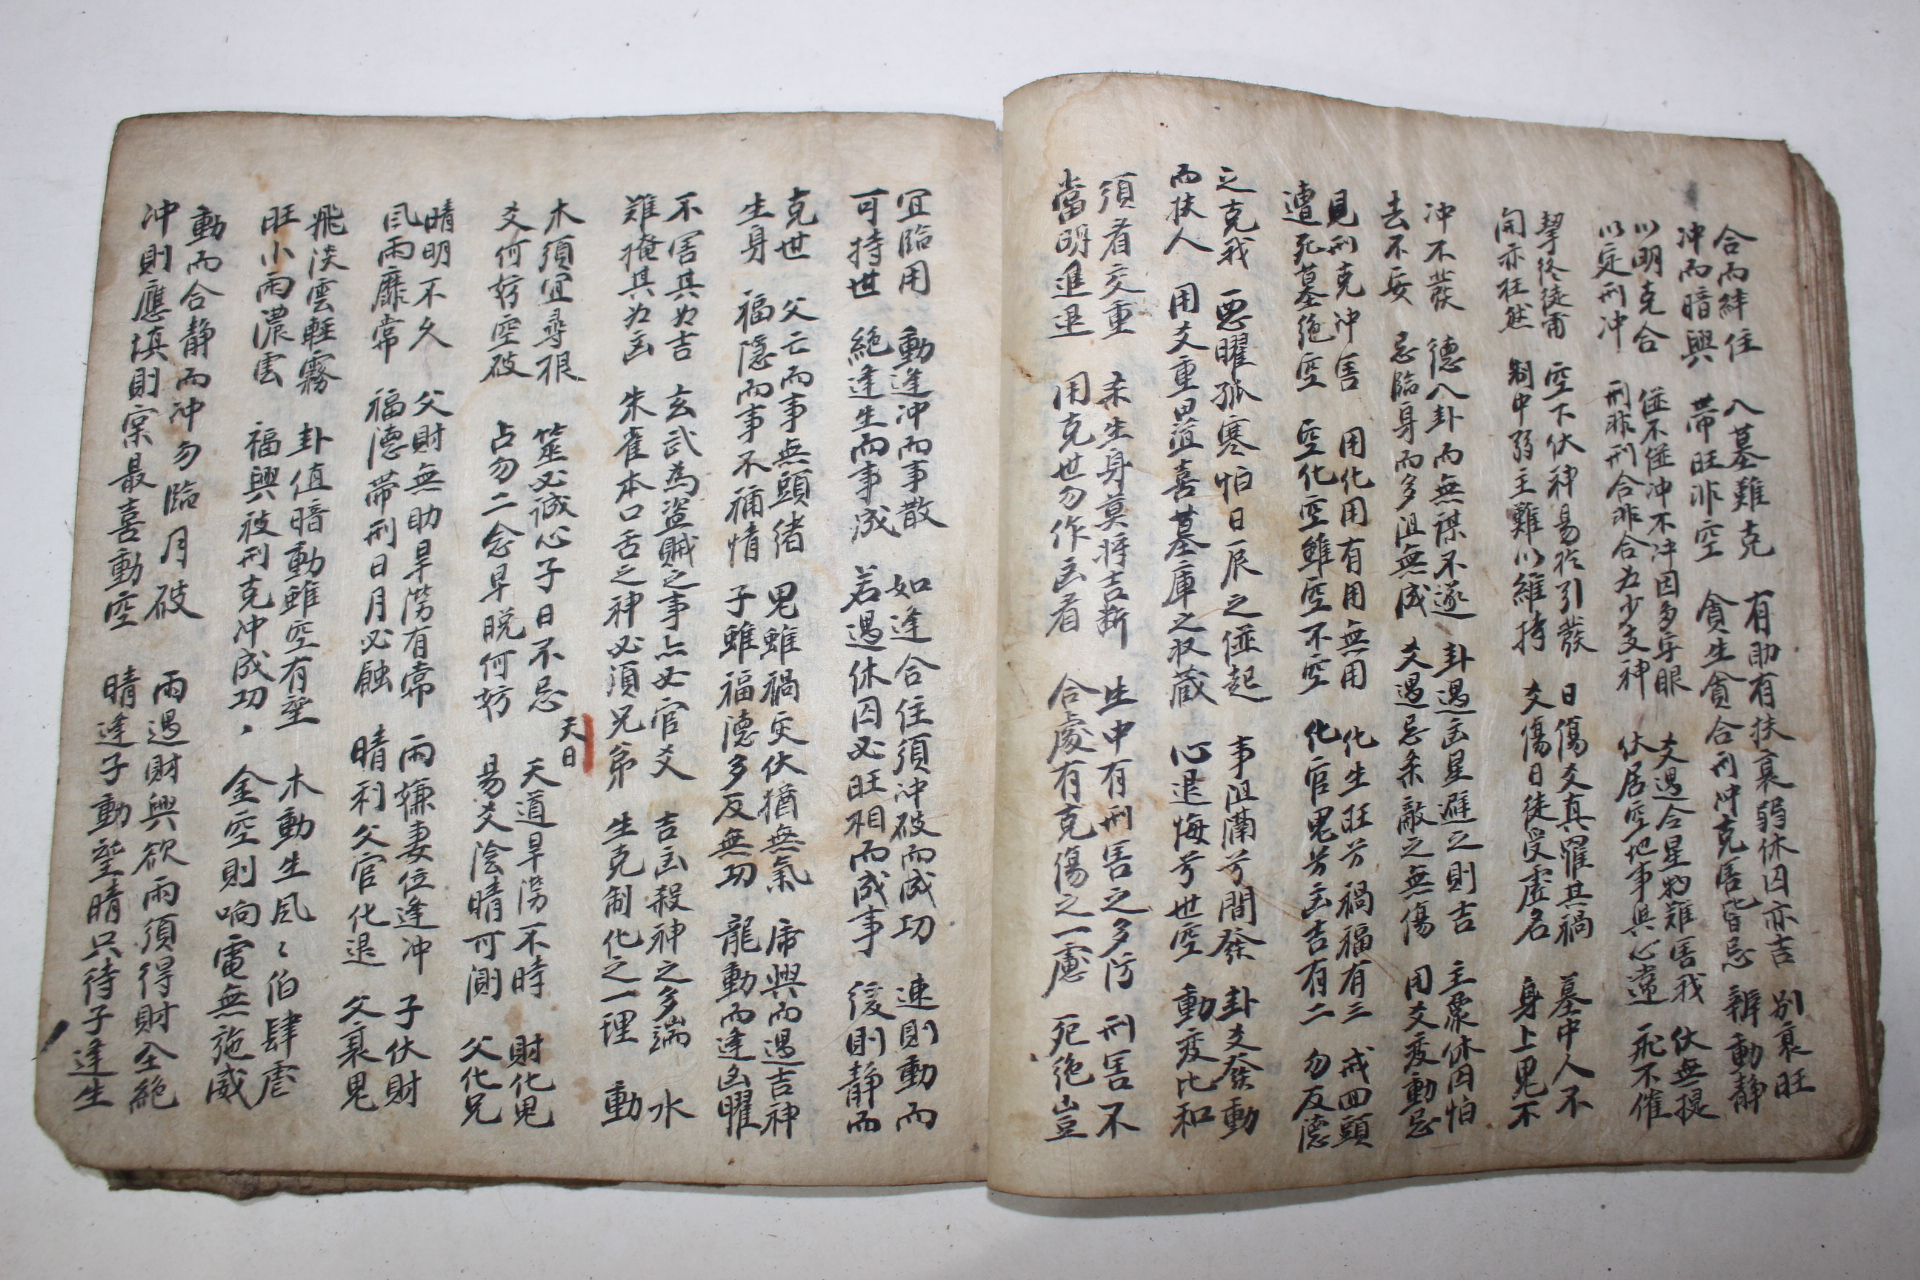 合而絆住 八墓難克 有助有扶衰弱休囚亦吉 別衰旺
冲而暗興 帶旺非空 貪生貪合刑冲克害皆忌 辨動静
以明克合 併不併冲不冲因多字眼 爻遇合星物難害我 伏無提
以定刑冲 刑非刑合非合为少支神 伏居空地事與心違 飛不催
挈終徒爾 空下伏神易於引發 日傷爻真罹其禍 墓中人不
開亦枉然 制中弱主難以維持 爻傷日徒受虛名 身上鬼不
冲不發 德八卦而無謀不遂 卦遇凶星避之則吉 主象休囚怕
去不安 忌臨身而多阻無成 爻遇忌杀敵之無傷 用爻变動忌
見刑克冲害 用化用有用無用 化生旺兮禍福有三 戒回頭
遭死墓絶空 空化空雖空不空 化官鬼兮凶吉有二 勿反德
之克我 惡曜孤寒怕日辰之併起 事阻滯兮間發 卦爻發動
而扶人 用爻重畳喜墓庫之収蔵 心退悔兮世空 動变比和
須看交重 杀生身莫將吉断 生中有刑害之多防 刑害不
當明進退 用克世勿作凶看 合處有克傷之一慮 死絶豈
宜臨用 動逢冲而事散 如逢合住須冲破而成功 速則動而
可持世 絶逢生而事成 若遇休囚必旺相而成事 緩則静而
克世 父亡而事無頭緒 鬼雖禍災伏猶無氣 虎興而遇吉神
生身 福隱而事不稱情 子雖福德多反無功 龍動而逢凶曜
不害其为吉 玄武為盜賊之事亦必官爻 吉凶殺神之多端 水
難掩其为凶 朱雀本口舌之神必須兄弟 生克制化之一理 動
木須宜尋根 筮必誠心子日不忌 天道旱澇不時 財化鬼
天日
爻何妨空破 占勿二念早晩何妨 易爻陰晴可測 父化兄
晴明不久 父財無助旱澇有常 雨嫌妻位逢冲 子伏財
風雨靡常 福德帶刑日月必蝕 晴利父官化退 父衰鬼
飛淡雲輕霧 卦值暗動雖空有望 木動生風風伯肆虐
旺小雨濃雲 福興被刑克冲成功 金空則响電無施威
動而合静而冲勿臨月破 雨遇財興欲雨須得財全絶
冲則應填則宲最喜動空 晴逢子動望晴只待子逢生